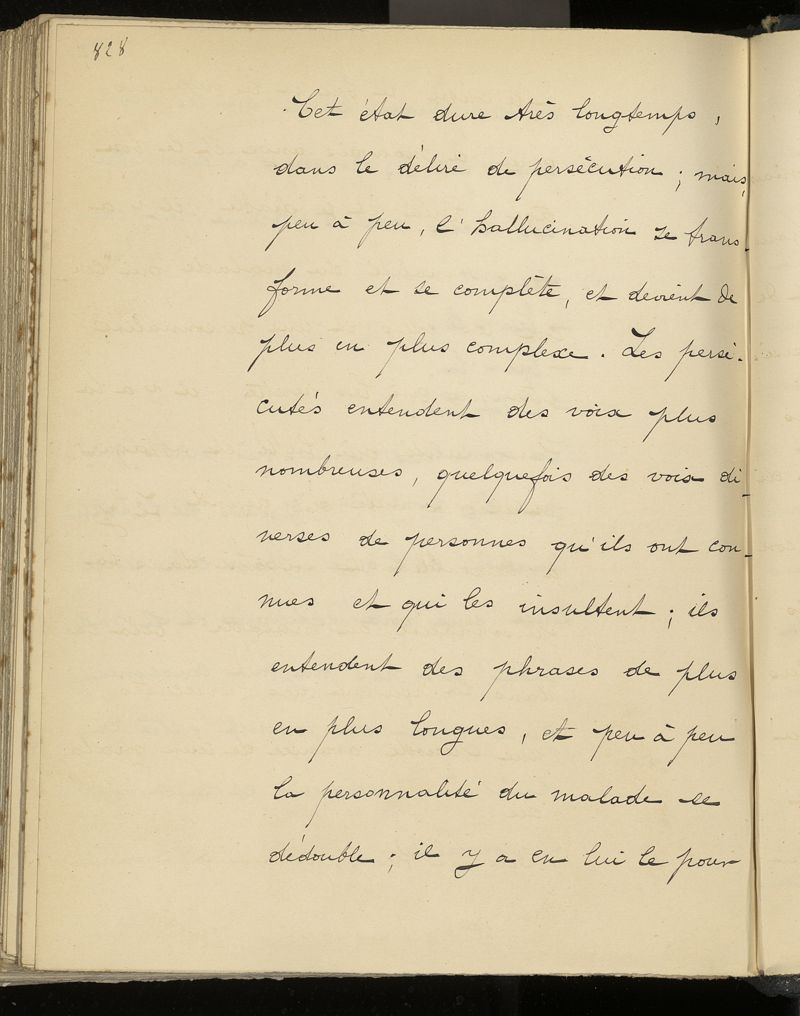 828
Cet état dure très longtemps,
dans le délire de persécution ; mais,
peu à peu, l'hallucination se trans-
forme et se complète, et devient de
plus en plus complexe. Les persé-
cutés entendent des voix plus
nombreuses, quelquefois des voix di-
verses de personnes qu'ils ont con-
nues et qui les insultent ; ils
entendent des phrases de plus
en plus longues, et peu à peu
la personnalité du malade se
dédouble ; il y a en lui le pour